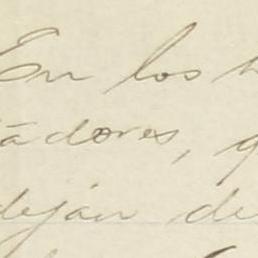 En los
tadores,
dejan de